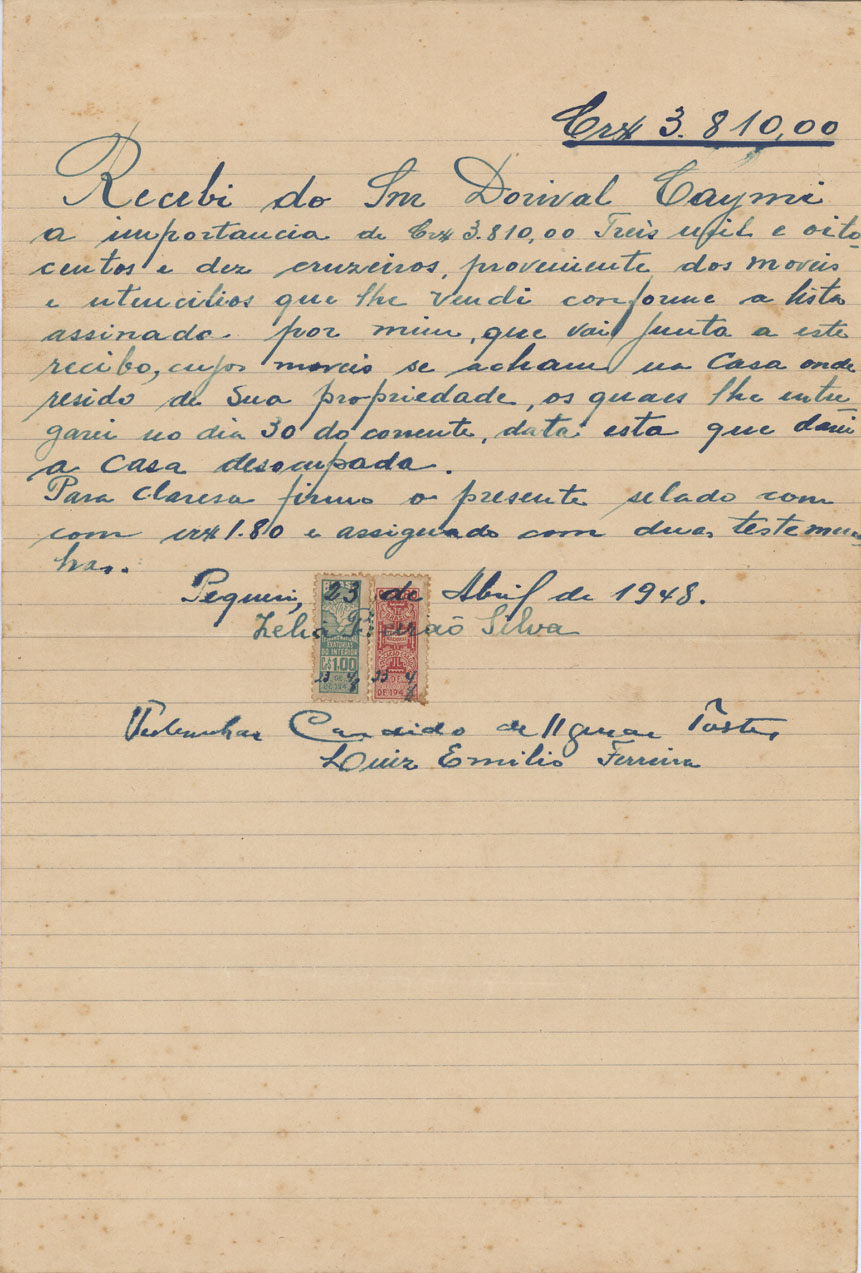 Cr$ 3.810,00
Recebi do Snr Dorival Caymi
a importancia de Cr$ 3.810,00 Treis mil e oito-
centos e dez cruzeiros, proveniente dos moveis
e utencilios que lhe vendi conforme a lista
assinada por mim, que vai junta a este
recibo, cujos moveis se acham na casa onde
resido de sua propriedade, os quaes lhe entre
garei no dia 30 do corrente, data esta que darei
a casa desocupada.
Para claresa firmo o presente selado com
com cr$ 1.80 e assignado com duas testemu-
has.
Pequeri, 23 de Abril de 1948.
Zelia Silva
EXATORIAS
DO INTERIOR
C$ 1,00
23 4/8 23 4/8
DE 194
DE 194
Testemunhas Candido de Tostes
Luiz Emilio Ferreira